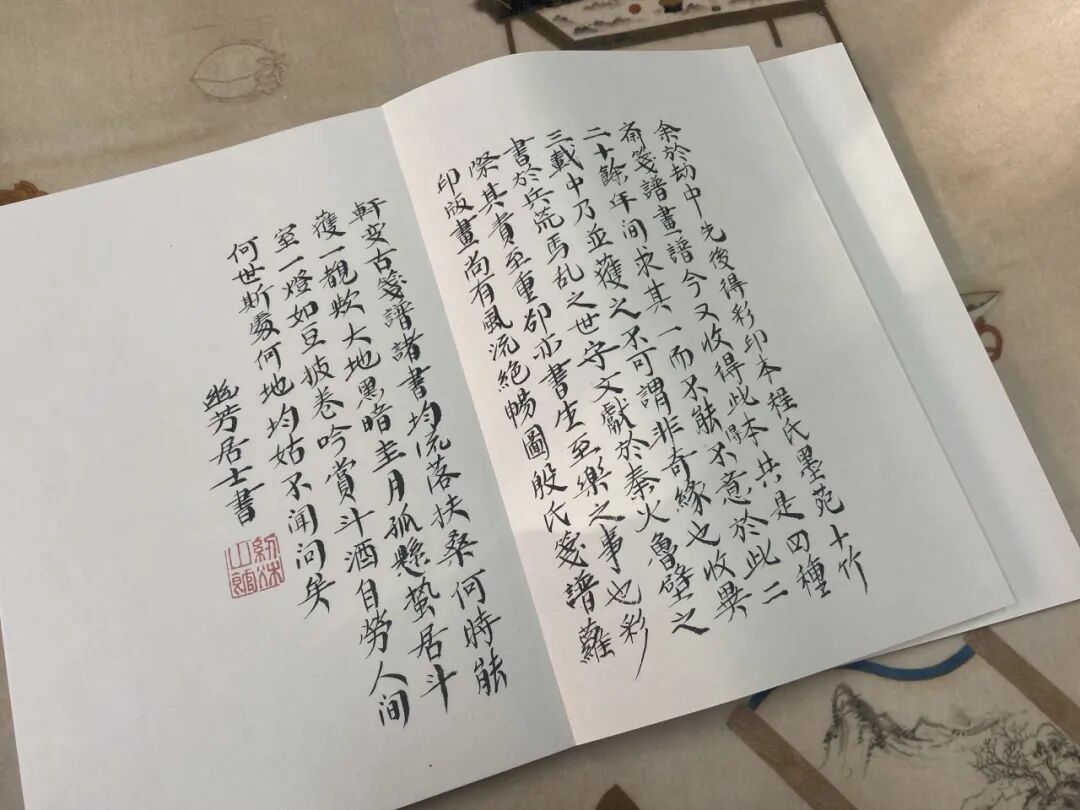 余於劫中先後得彩印本程氏墨苑十竹
斎箋譜畫譜今又收得此本共是四種
二十餘年间求其一而不能得不意於此二
三載中乃並獲之不可謂非奇緣也收異
書於兵荒馬乱之世守文獻於秦火魯壁之
際其責至重卻亦書生至樂之事也彩
印版畫尚有風流絕暢圖殷氏箋譜蘿
軒变古箋譜諸書均流落扶桑何時能
獲一覩歟大地黑暗圭月孤懸蟄居斗
室一燈如豆披卷吟賞斗酒自勞人间
何世斯處何地均姑不聞问矣
幽芳居士書
紉秋山館